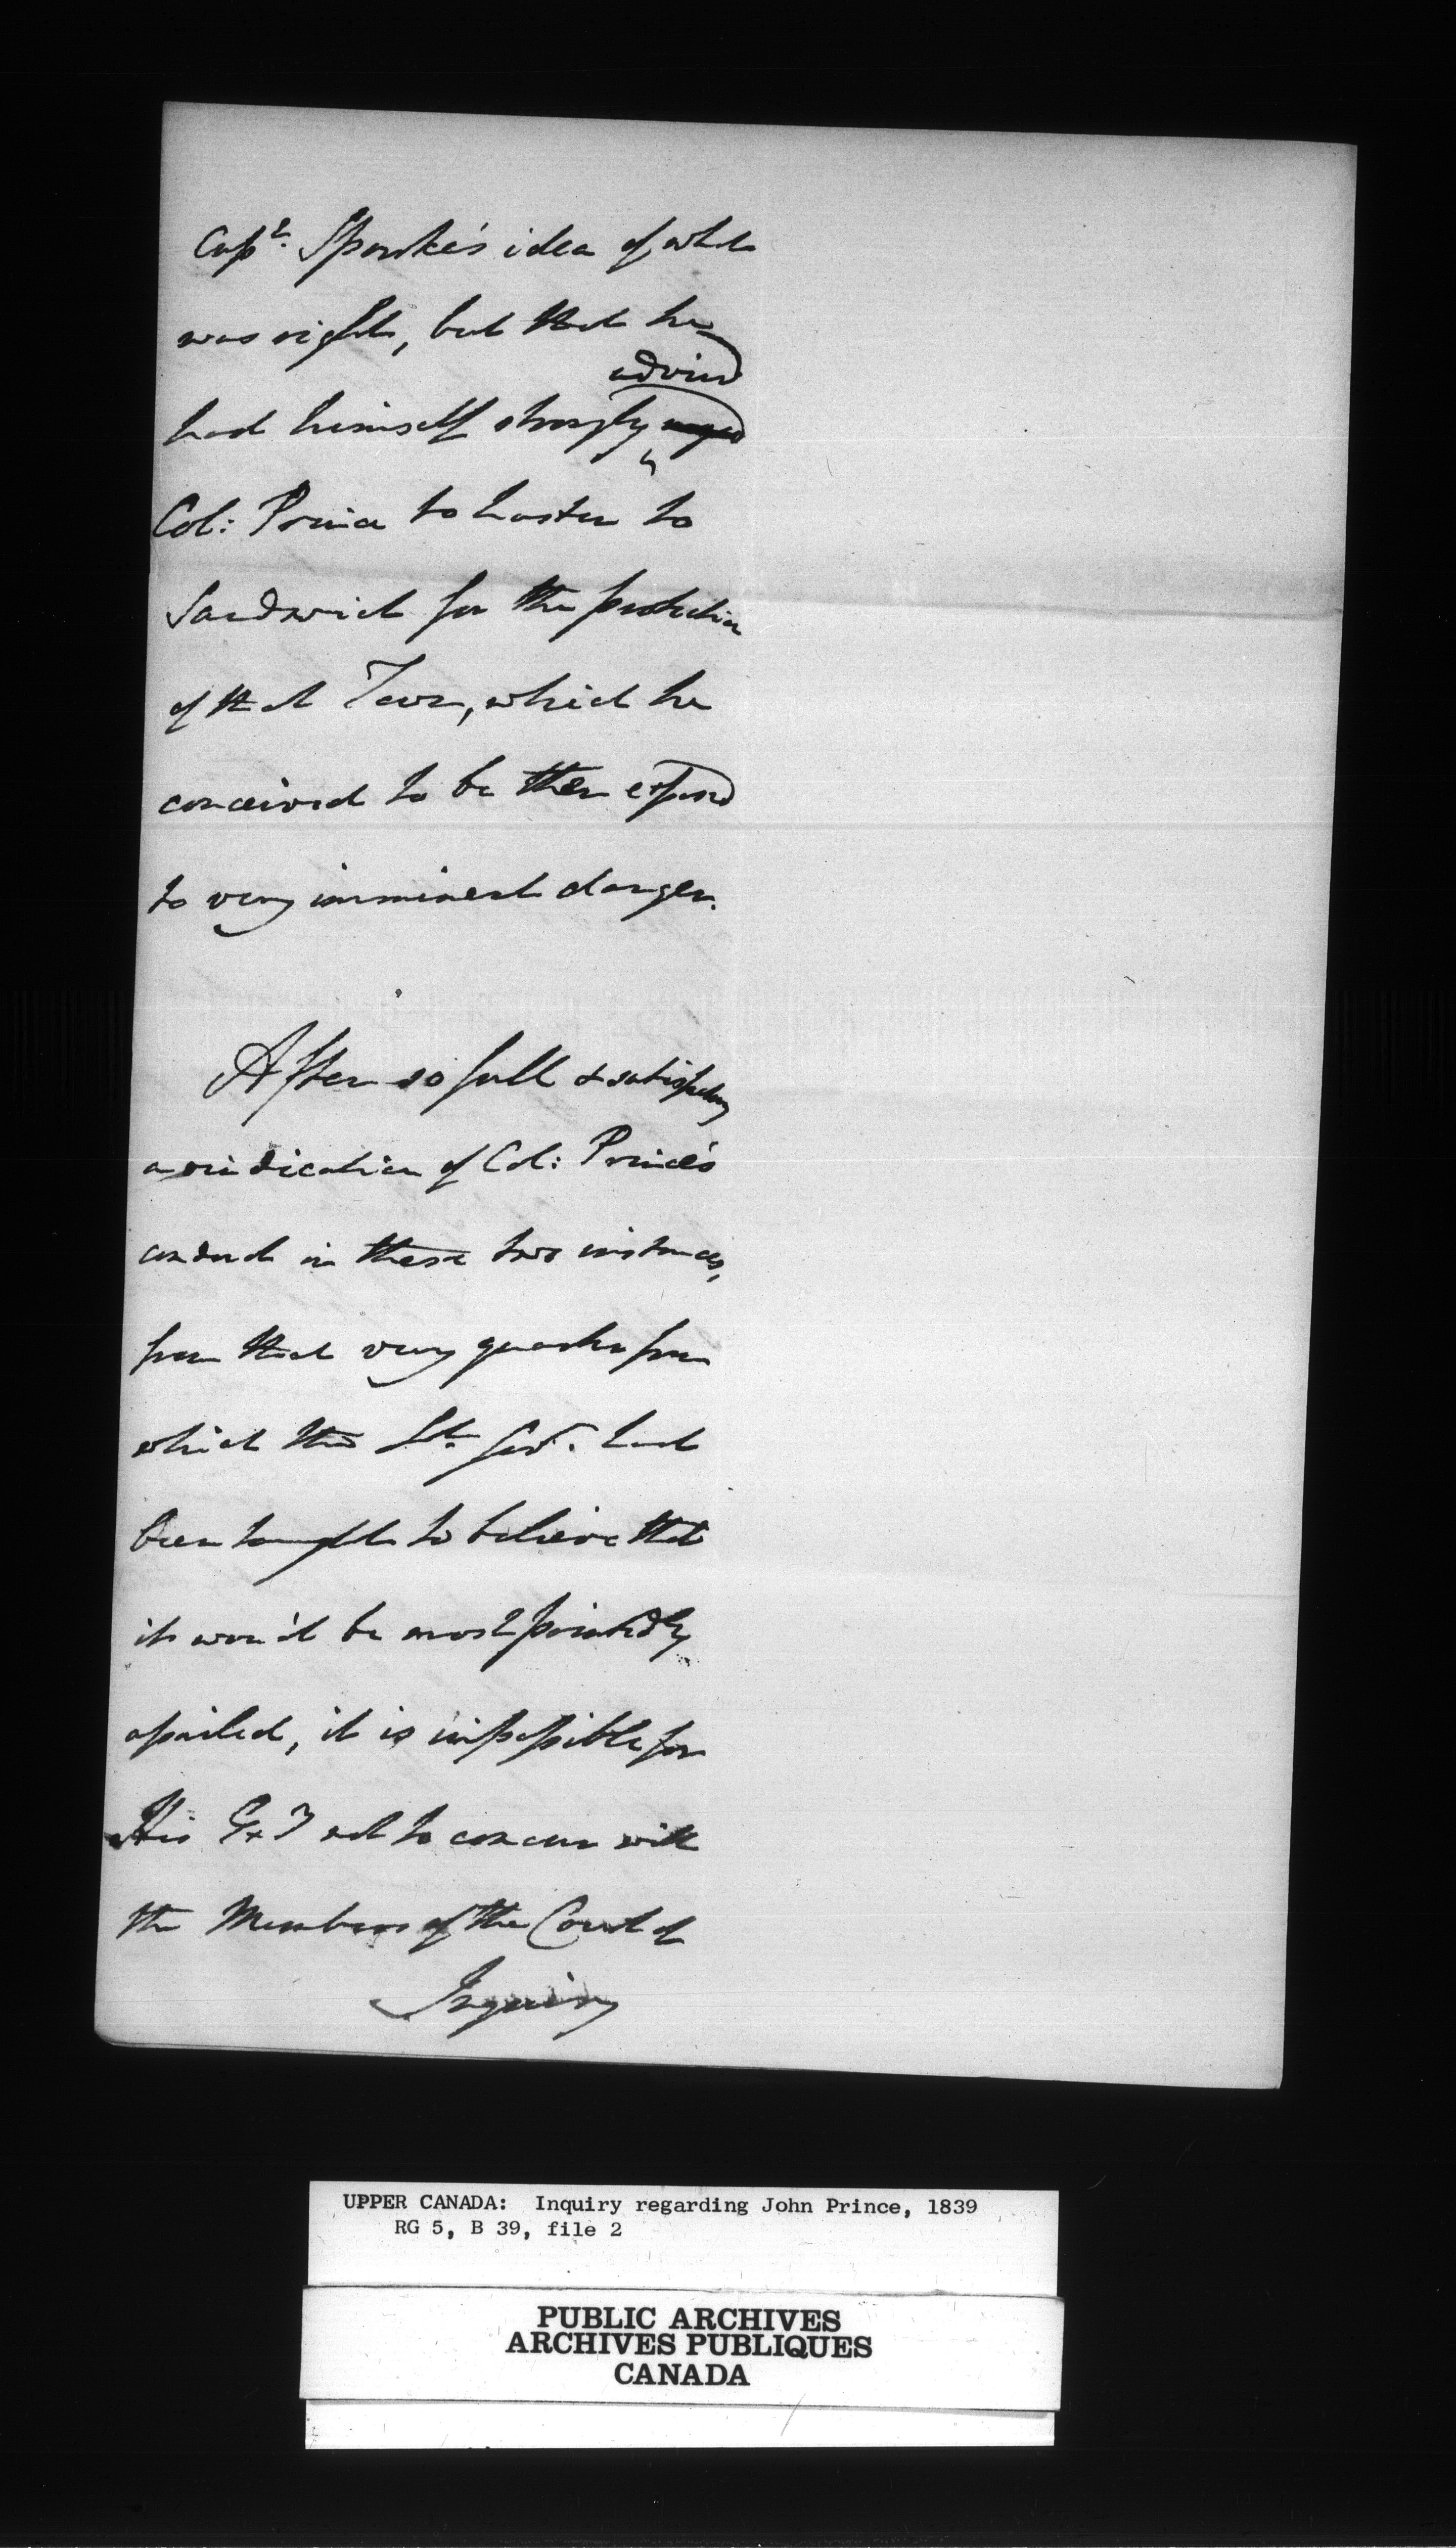 Capt. Sparke's idea of what
was right, but that he
advised
had himself strongly urged
Col: Prince to hasten to
Sandwich for the protection
of that Town, which he
conceived to be then exposed
to very imminent danger.
After so full & satisfactory
a vindication of Col: Prince's
conduct in these two instances,
from that very quarter from
which the Lt. Gov. had
been taught to believe that
it wou'd be most pointedly
assailed, it is impossible for
His Ex not to concur with
the Members of the Court of
Inquiry
UPPER CANADA: Inquiry regarding John Prince, 1839
RG 5, B 39, file 2
PUBLIC ARCHIVES
ARCHIVES PUBLIQUES
CANADA